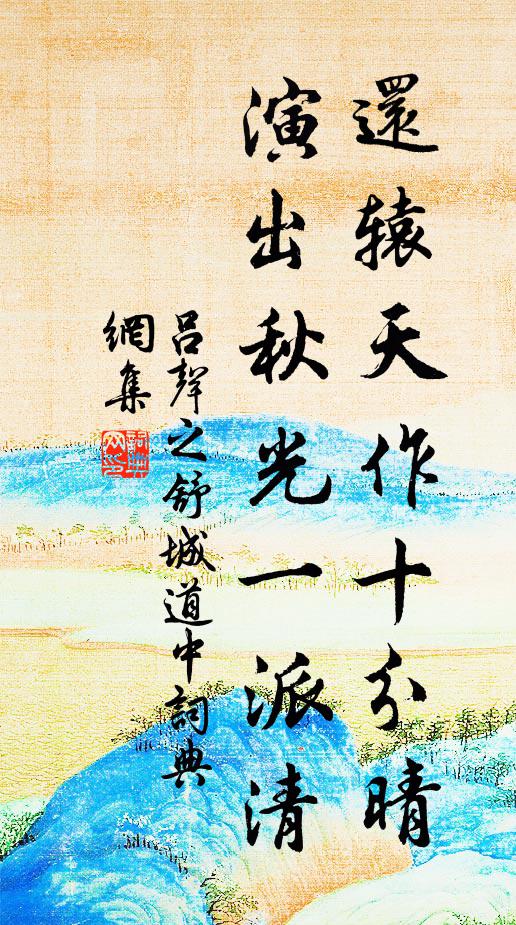 還辕天作十分晴
演出秋光一派清
吕聲之舒城道中詞典
網集